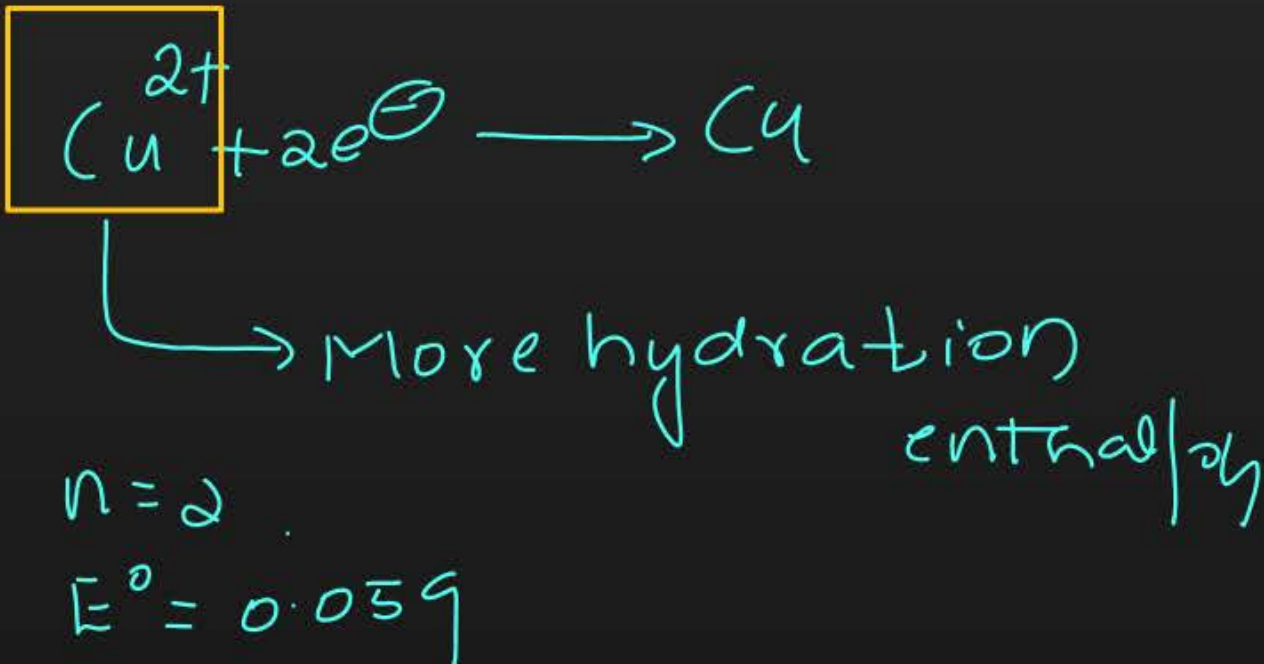 Cu²⁺ + 2e⊖ ⟶ Cu
→ More hydration
enthalpy
n = 2
E⁰ = 0.059